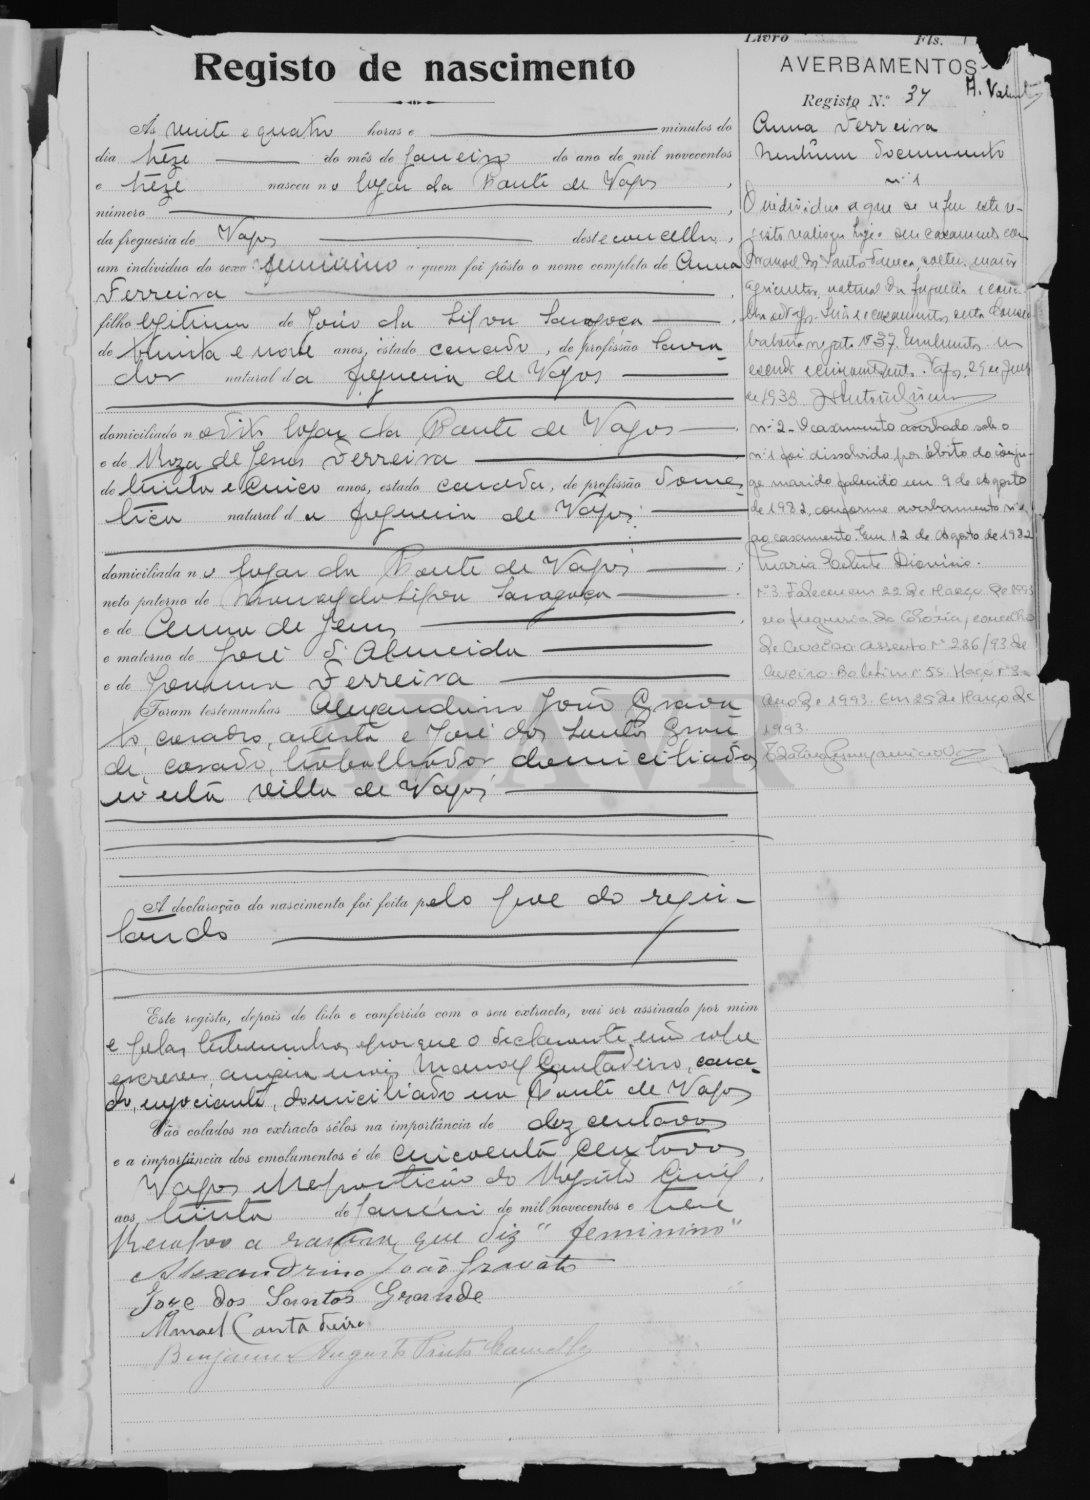 Livro Fls.
Registo de nascimento
Ás vinte e quatro horas e minutos do
dia trêze do mês de Janeiro do ano de mil novecentos
e trêze nasceu no logar da Ponte de Vagos,
número ,
da freguesia de Vagos deste concelho,
um indivíduo do sexo feminino a quem foi pôsto o nome completo de Anna
Ferreira ,
filho legitimo de João da Silva Saragoça ,
de trinta e nove anos, estado casado, de profissão Lavra-
dor natural da freguesia de Vagos
domiciliado no dito logar da Ponte de Vagos
e de Roza de Jesus Ferreira
de trinta e cinco anos, estado casada, de profissão domes-
tica natural da freguesia de Vagos
domiciliada no logar da Ponte de Vagos ;
neto paterno de Manoel da Silva Saragoça
e de Anna de Jesus
e materno de José d'Almeida
e de Joanna Ferreira
Foram testemunhas Alexandrino João Grava
to, casado, artista e José dos Santos Gran
de, casado, trabalhador, domiciliados
nesta villa de Vagos,
A declaração do nascimento foi feita pelo pae do regis-
tando
Este registo, depois de lido e conferido com o seu extracto, vai ser assinado por mim
e pelas testemunhas, e porque o declarante não sabe
escrever, assina mais Manoel Cantadeiro, casa-
do, negociante, domiciliado na Ponte de Vagos
Vão colados no extracto sêlos na importância de dez centavos
e a importância dos emolumentos é de cincoenta centavos
Vagos e Repartição do Registo Civil,
aos trinta de Janeiro de mil novecentos e treze
Resalvo a rasura que diz "feminino"
Alexandrino João Gravato
Joze dos Santos Grande
Manoel Cantadeiro
Benjamin Augusto
AVERBAMENTOS
Registo N.º 37
Anna Ferreira
Nenhum documento
nº 1
O individuo a que se refere este re-
gisto realisou hoje o seu casamento com
Manoel dos Santos solteiro, maior
agricultor, natural da freguesia e conce-
registo nº 37.
de 1938
nº 2 - O casamento averbado sob o
nº 1 foi dissolvido por óbito do cônju-
ge marido falecido em 9 de Agosto
de 1982, conforme averbamento nº 1
ao casamento. Em 12 de Agosto de 1982
Maria Celeste Dionísio.
nº 3. Faleceu em 22 de Março de 1993
na freguesia da Glória, concelho
de Aveiro. Assento nº 286/93 de
Aveiro. Boletim nº 55 Maço nº 3
Ano de 1993. Em 25 de Março de
1993.